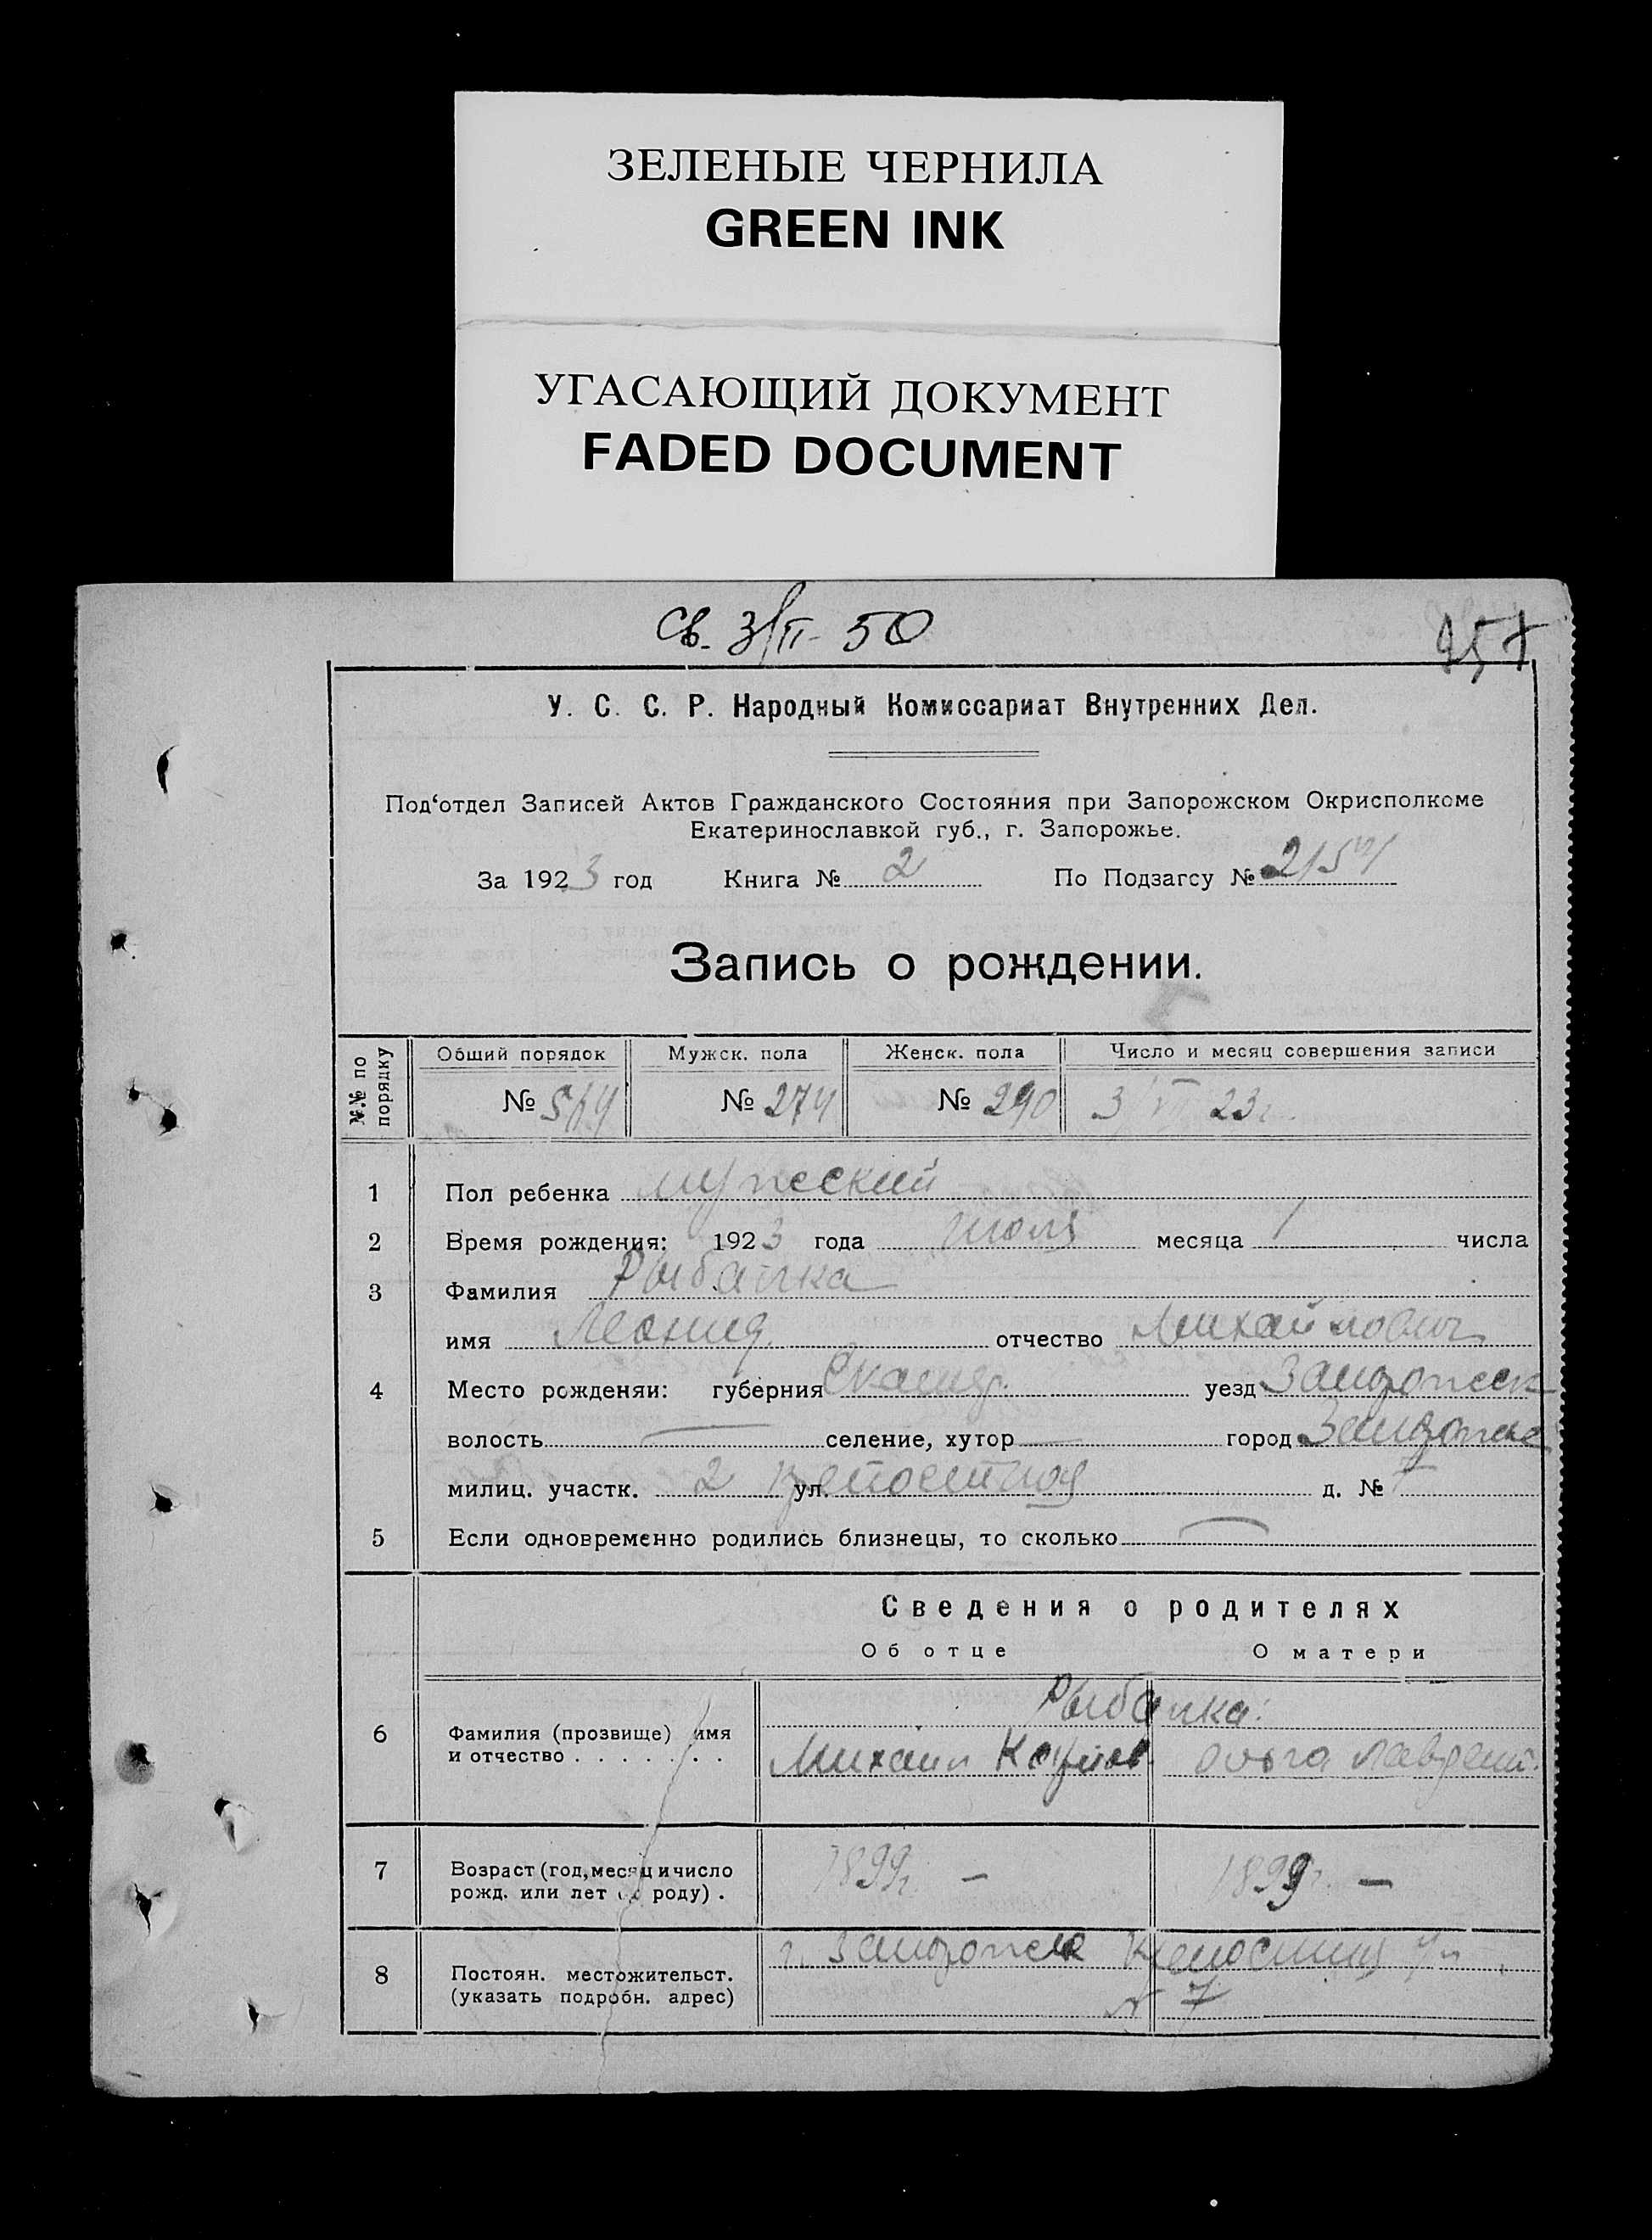 ЗЕЛЕНЫЕ ЧЕРНИЛА
GREEN INK
УГАСАЮЩИЙ ДОКУМЕНТ
FADED DOCUMENT
Св. 3/II- 50
У. С. С. Р. Народный Комиссариат Внутренних Дел.
Под‘отдел Записей Актов Гражданского Состояния при Запорожском Окрисполкоме
Екатеринославкой губ., г. Запорожье.
За 1923 год Книга № 2 По Подзагсу №
Запись о рождении.
№№ по порядку Общий порядок Мужск. пола Женск. пола Число и месяц совершения записи
№ 564 № 274 № 290 3 VII 23г.
1 Пол ребенка мужеский
2 Время рождения: 1923 года июля месяца 1 числа
3 Фамилия Рыбалка
имя Леонид отчество Михайлович
4 Место рожденяи: губерния уезд Запорожск
волость — селение, хутор — город Запорожье
милиц. участк. 2 ул. Крепостная д. № 7
5 Если одновременно родились близнецы, то сколько —
Сведения о родителях
Об отце О матери
Рыбалка:
6 Фамилия (прозвище) имя
и отчество . . . . . . . Михаил Ольга Лаврент.
7 Возраст (год, месяц и число 1899г. — 1899г. —
рожд. или лет роду) .
г. Запорожье Крепостная ул.
8 Постоян. местожительст.
(указать подробн. адрес) № 7